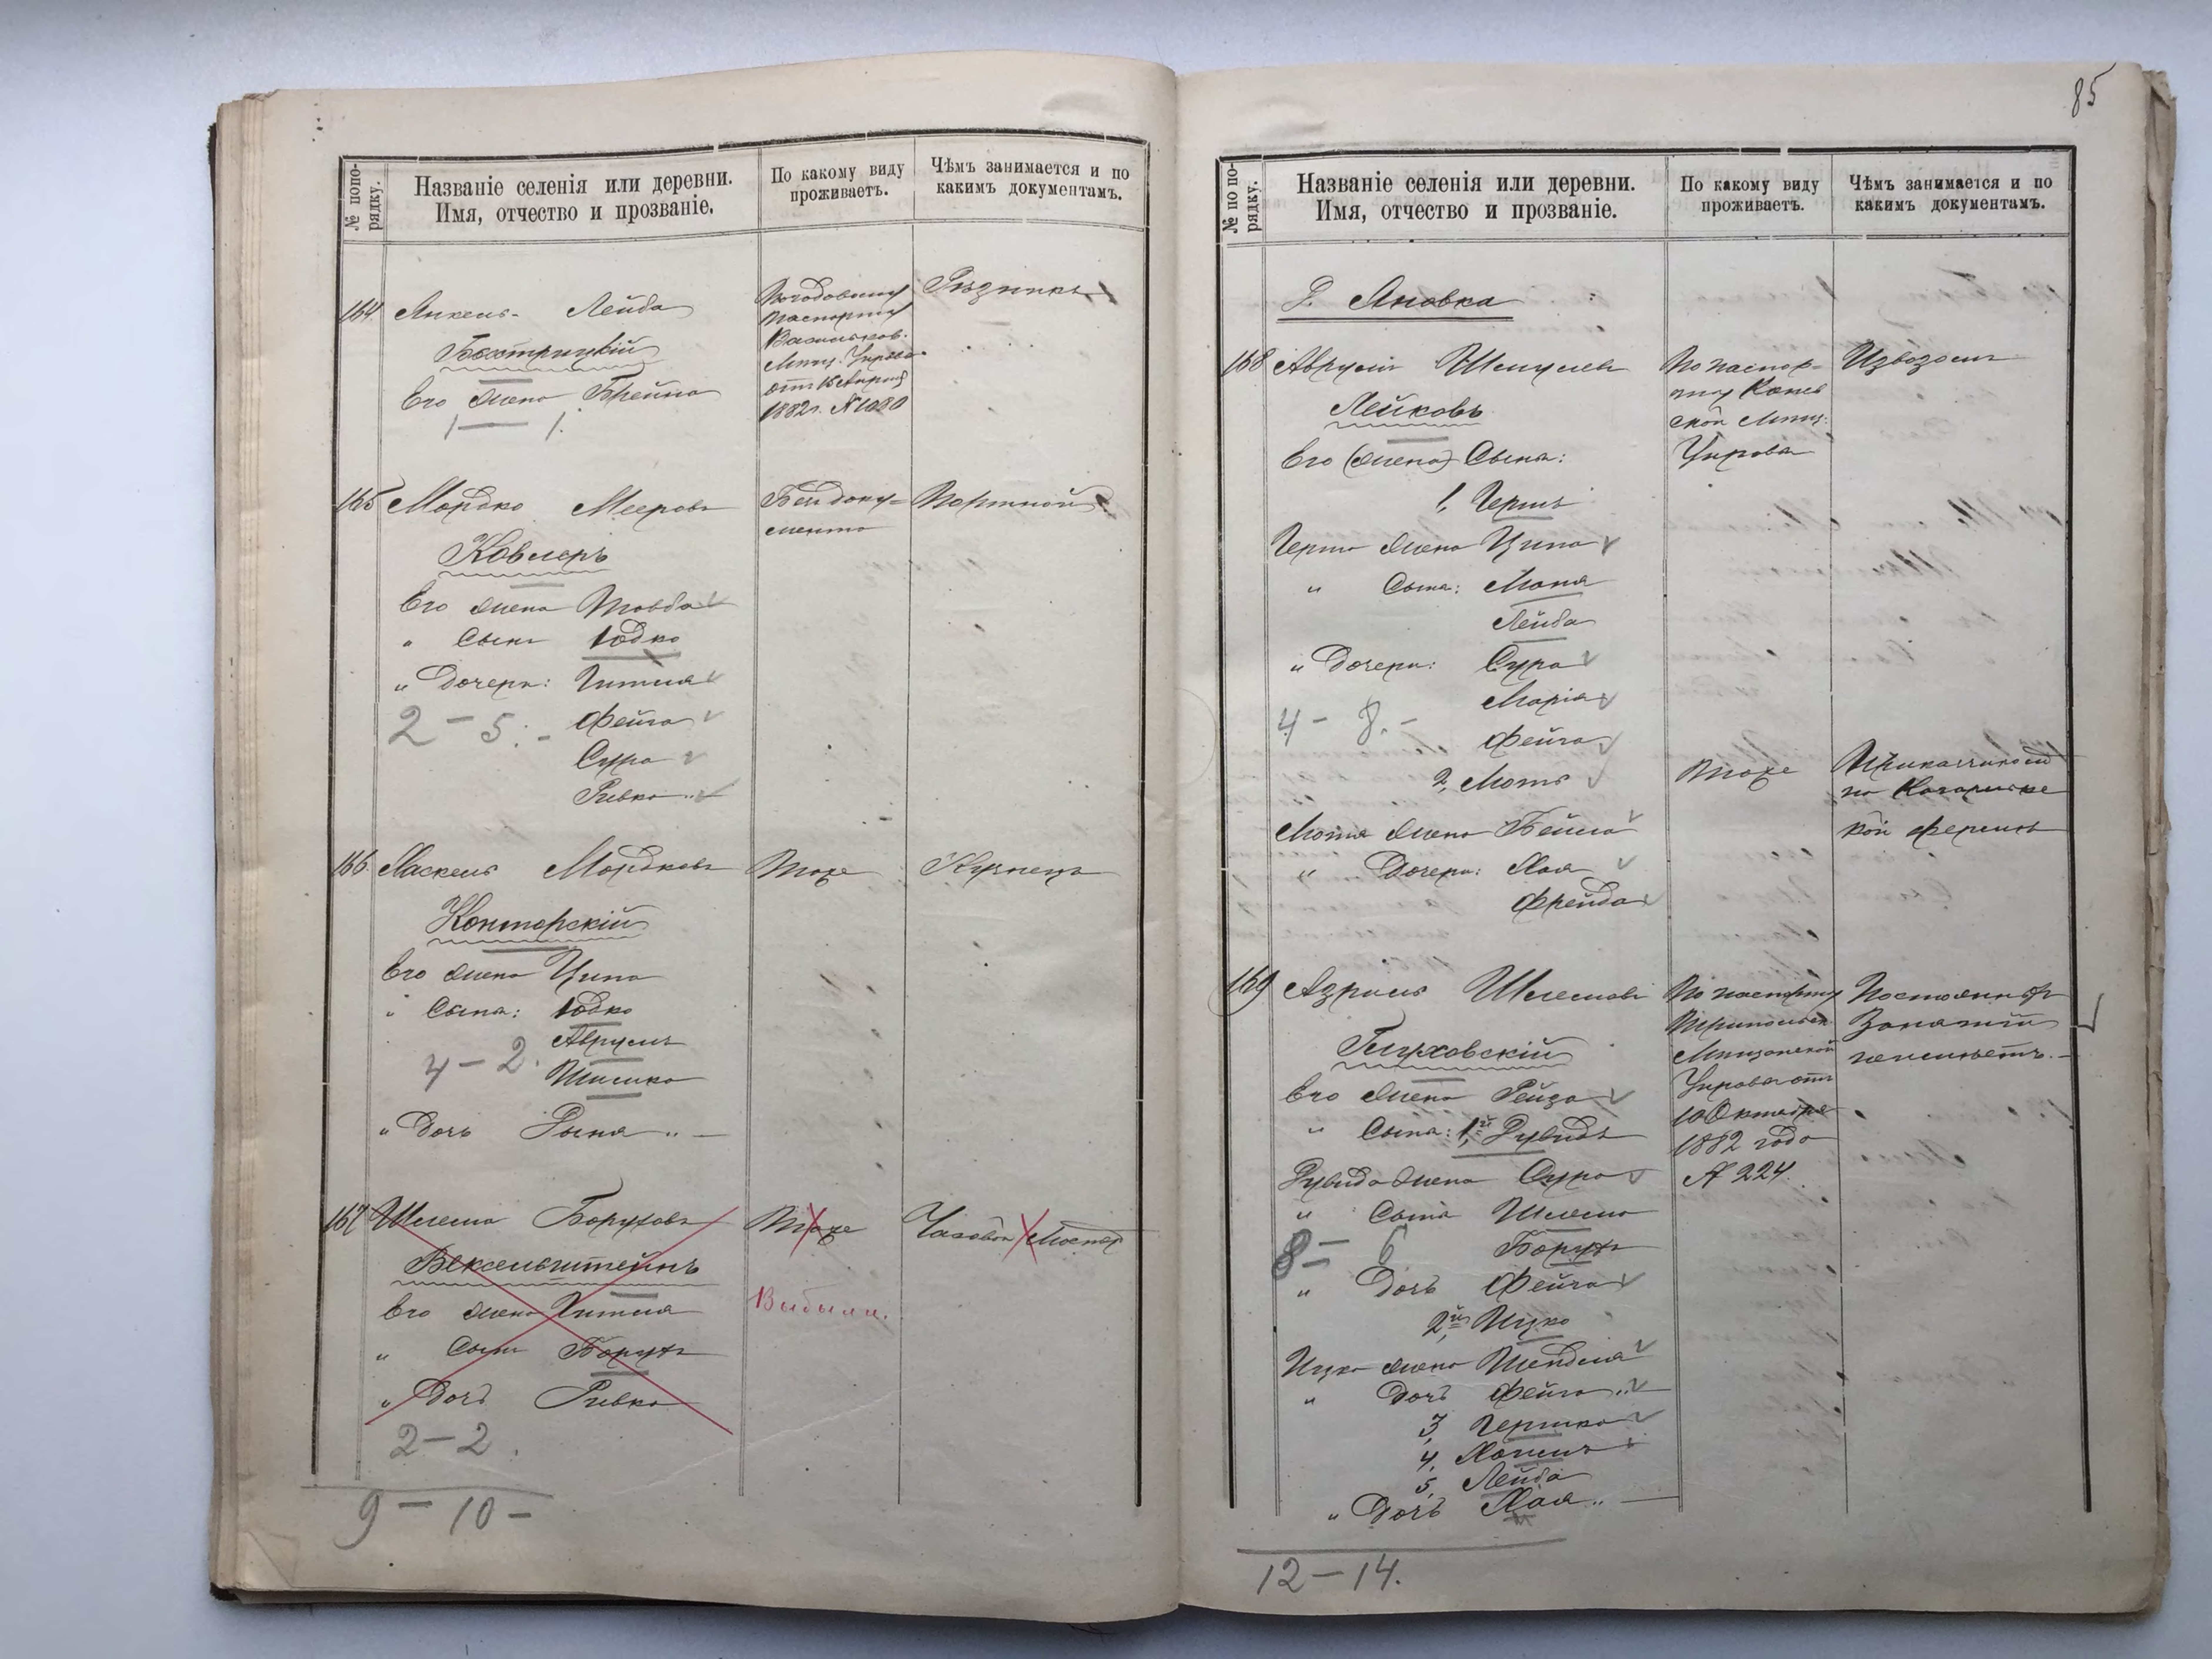 № попо-
рядку.
Названіе селенія или деревни.
Имя, отчество и прозваніе.
По какому виду
проживаетъ.
Чѣмъ занимается и по
какимъ документамъ.
164 Янкель-Лейба
Его жена Брейна
1 — 1.
Погодовому
паспорту
Васильков.
Мѣщ. Управы
отъ 15 Апрѣля
1882г. №1080
Рѣзникъ
165 Мордко Мееровъ
Ковлеръ
Его жена Товба
„ Сынъ Юдко
„ Дочери: Гитля
2 – 5. – Фейга
Сура
Ривка
Безъ доку-
мента
Портной
166. Хаскель Мордковъ
Конторскій
Его жена Ципа
„ Сына: Юдко
Аврумъ
4 – 2. Шмилко
„ Дочь Рыся „ —
Тоже
Кузнецъ
167 Шлема Боруховъ
Вексельштейнъ
Его жена Гитля
„ Сынъ Борухъ
„ Дочь Ривка
2 – 2.
Тоже
Выбыли.
Часовой Мастер
9 – 10 –
85
№ по по-
рядку.
Названіе селенія или деревни.
Имя, отчество и прозваніе.
По какому виду
проживаетъ.
Чѣмъ занимается и по
какимъ документамъ.
Д. Яновка
168 Аврумъ Шмулевъ
Лейковъ
Его (жена) Сына:
1, Гершъ
Герша жена Ципа
„ Сына: Моня
Лейба
„ Дочери: Сура
Марія
4 – 8. – Фейга
2, Мотя
Мотя жена Бейла
„ Дочери: Хая
Фрейда
По паспор-
ту Канев
ской Мѣщ:
Управы
Извозомъ
Тоже
Прикащикомъ
на Кагарлыкс
кой фермѣ
169 Азриль Шлемовъ
Глуховскій
Его жена Рейза
„ Сына: 1,й Рувидъ
Рувида жена Сура
„ Сына Шлема
8 – 6 Борухъ
„ Дочь Фейга
2й, Ицко
Ицка жена Шендля
„ Дочь Фейга „ —
3, Гершко
4,
5, Лейба
„ Дочь Хая „ —
По паспорту
Трипольск.
Мѣщанской
Управы отъ
10 Октября
1882 года
№ 224.
Постоянныхъ
Занятій
неимѣетъ. —
12 – 14.